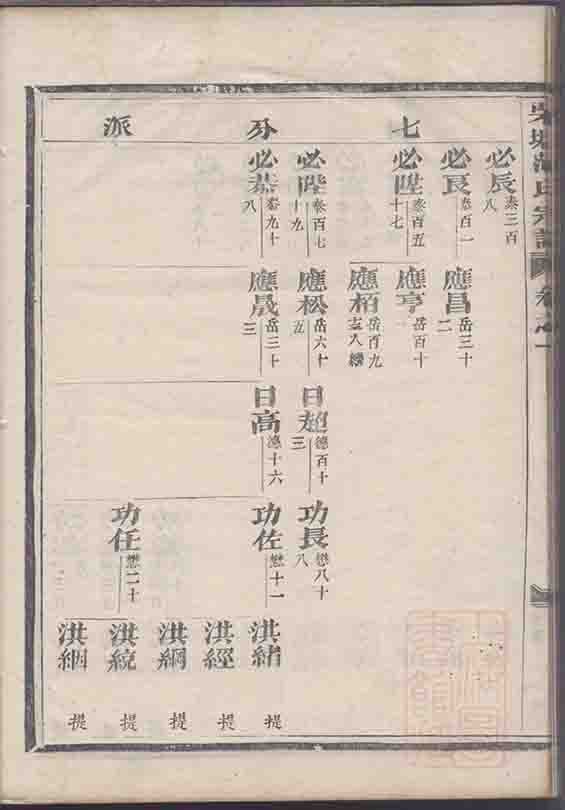 氏宗譜 卷之一
七分派
必辰 泰三百八
必艮 泰百一
必陞 泰百五十七
必陛 泰百七十九
必恭 泰九十八
應昌 岳三十二
應亨 岳百十
應栢 岳百九
應松 岳六十五
應晟 岳三十三
日超 德百十三
日高 德十六
功長 懋八十八
功佐 懋十一
功任 懋二十
洪緒 提
洪經 提
洪綱 提
洪統 提
洪絪 提